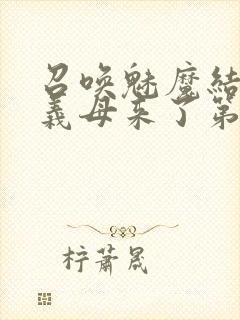 召唤魅魔结
义母来了第
柠萧晟